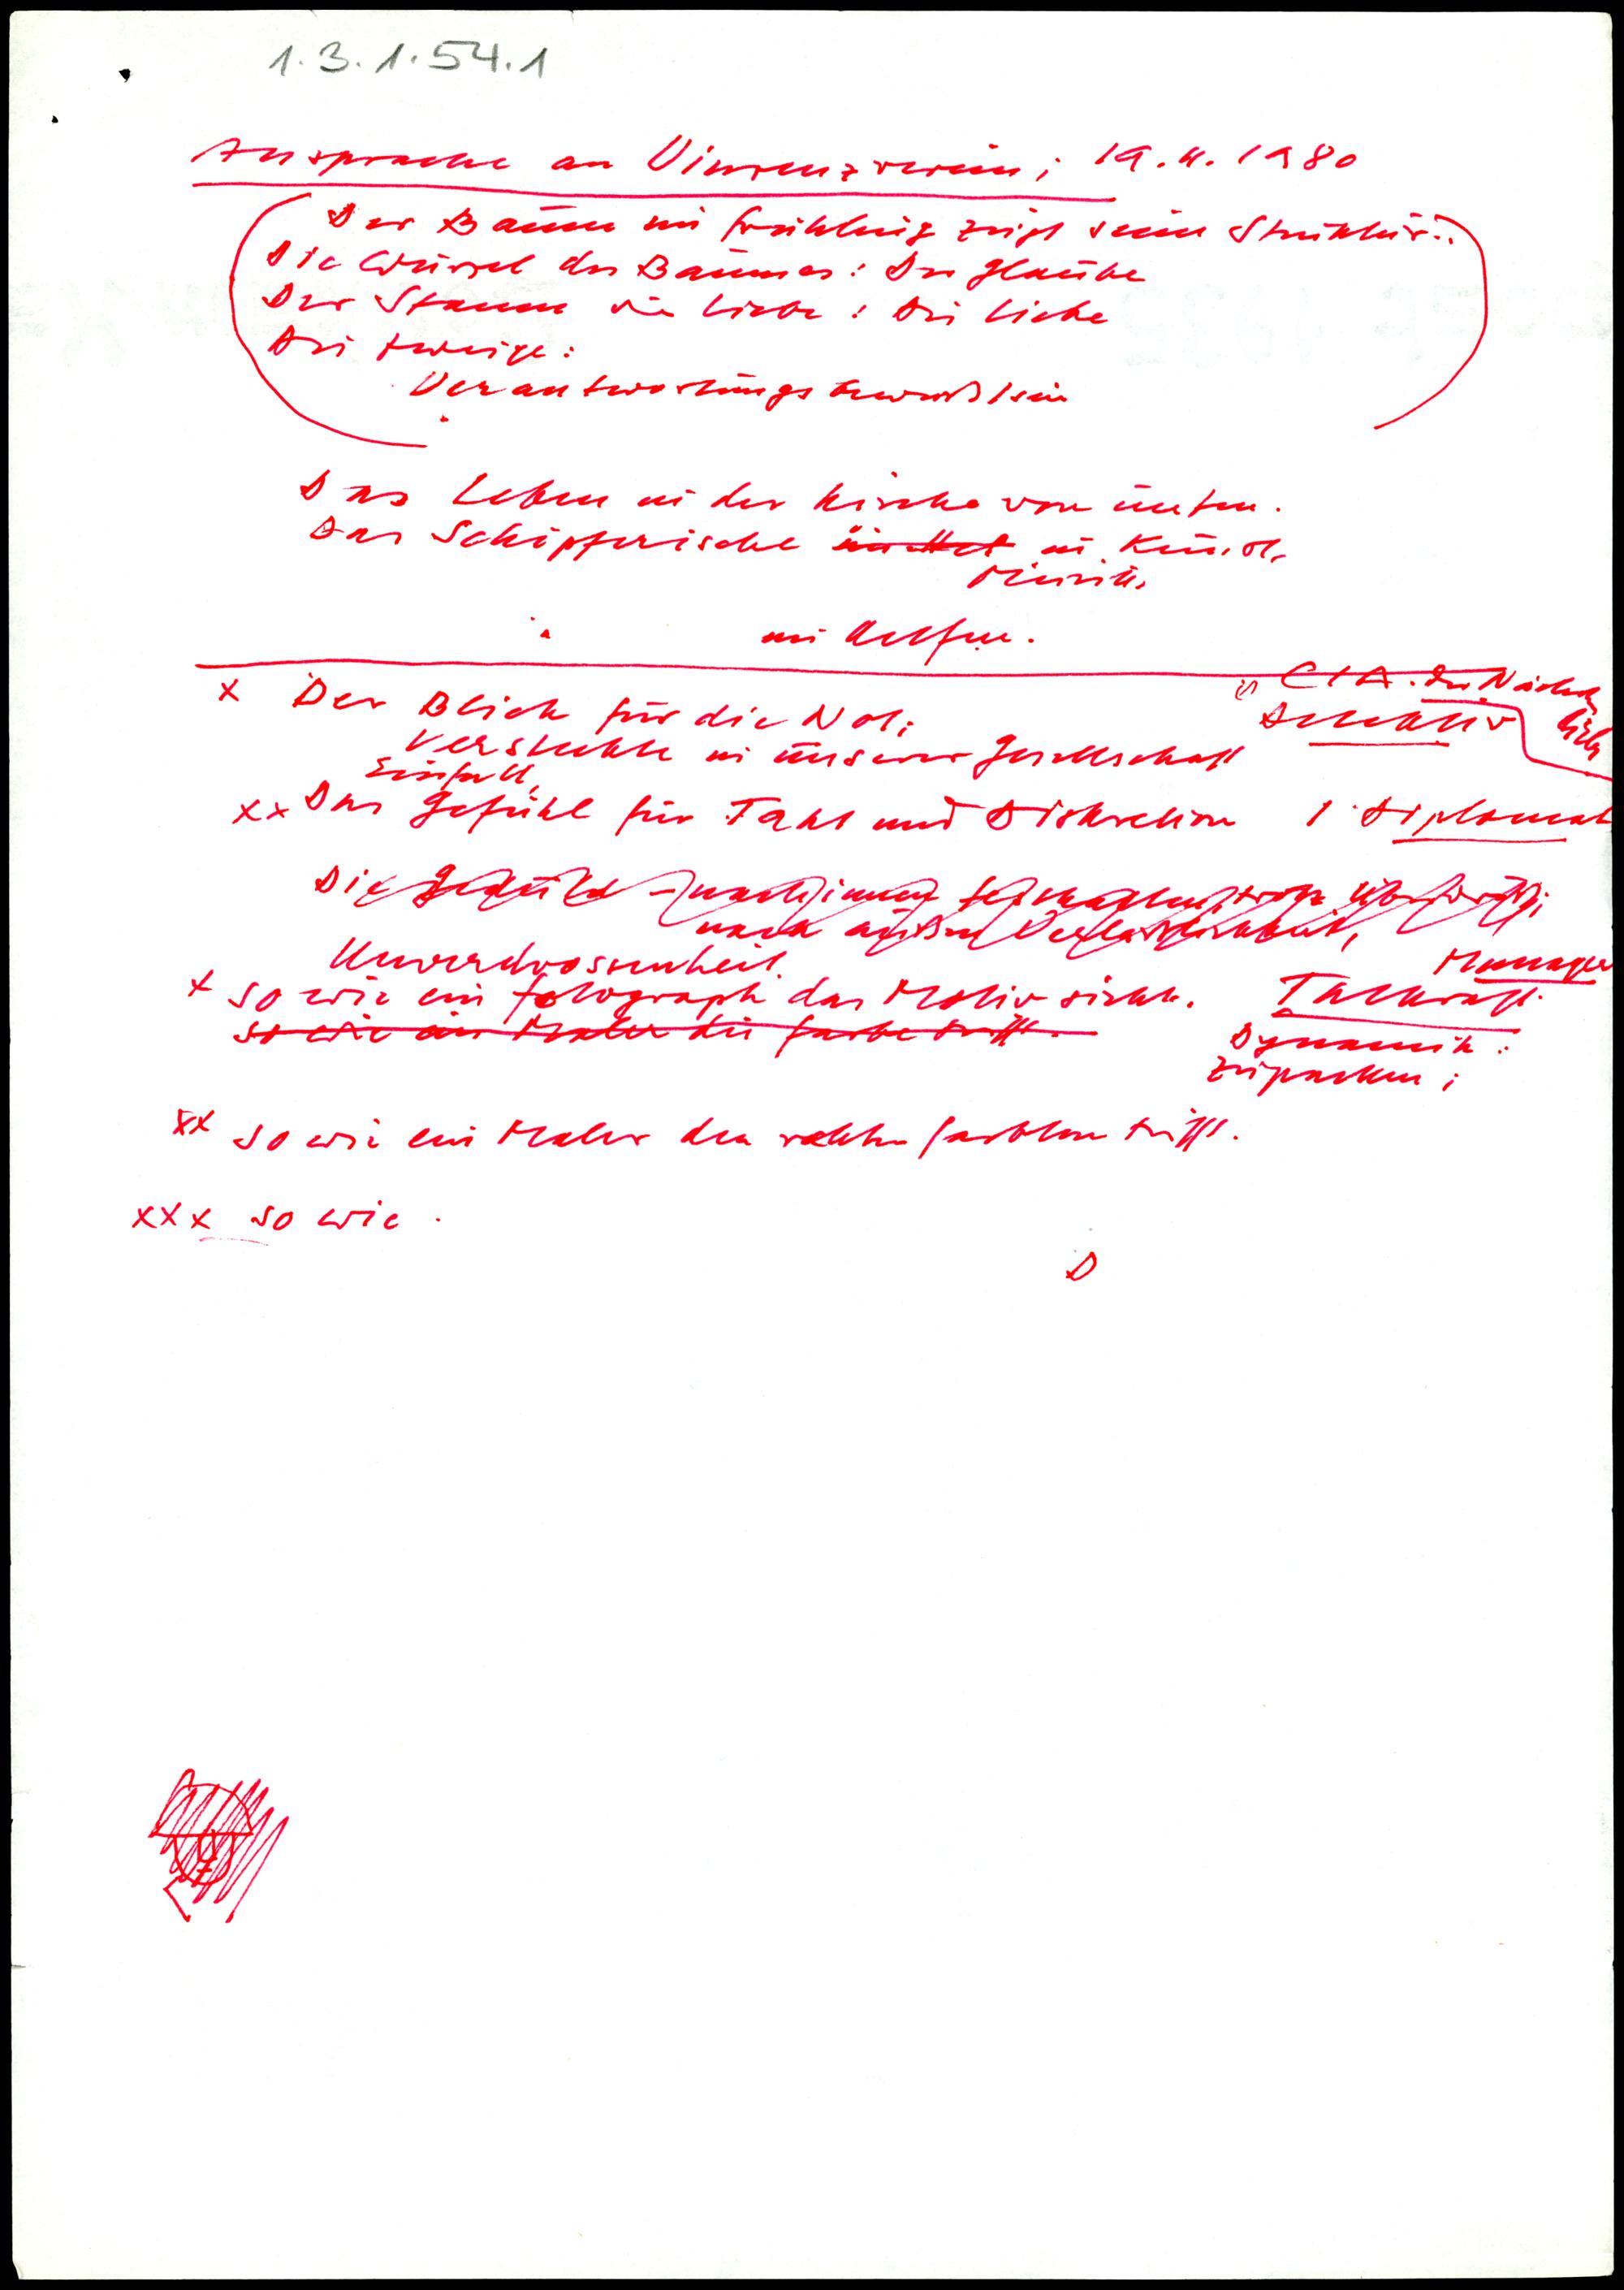 1.3.1.54.1
Ansprache an Vinzenzverein; 19.4.1980
Der Baum im Frühling zeigt seine Struktur:
Die Wurzel des Baumes: Der Glaube
Der Stamm die Liebe: Die Liebe
Die Zweige:
Verantwortungsbewußtsein
Das Leben in der Kirche von unten.
Das Schöpferische in Kunst,
Musik,
im Helfen.
CIA. der Nächsten
liebe
x Der Blick für die Not;
Detektiv
Versteckte in unserer Gesellschaft
Einfall,
xx Das Gefühl für Takt und Diskretion 1 Diplomat
Die Geduld - nach innen
nach außen Verläßlichkeit,
Unverdrossenheit.
Manager
x so wie ein Fotograph das Motiv sieht. Tatkraft
so wie ein Maler die Farbe trifft.
Dynamik:
zupacken;
xx so wie ein Maler den rechten Farbton trifft.
xxx so wie
D